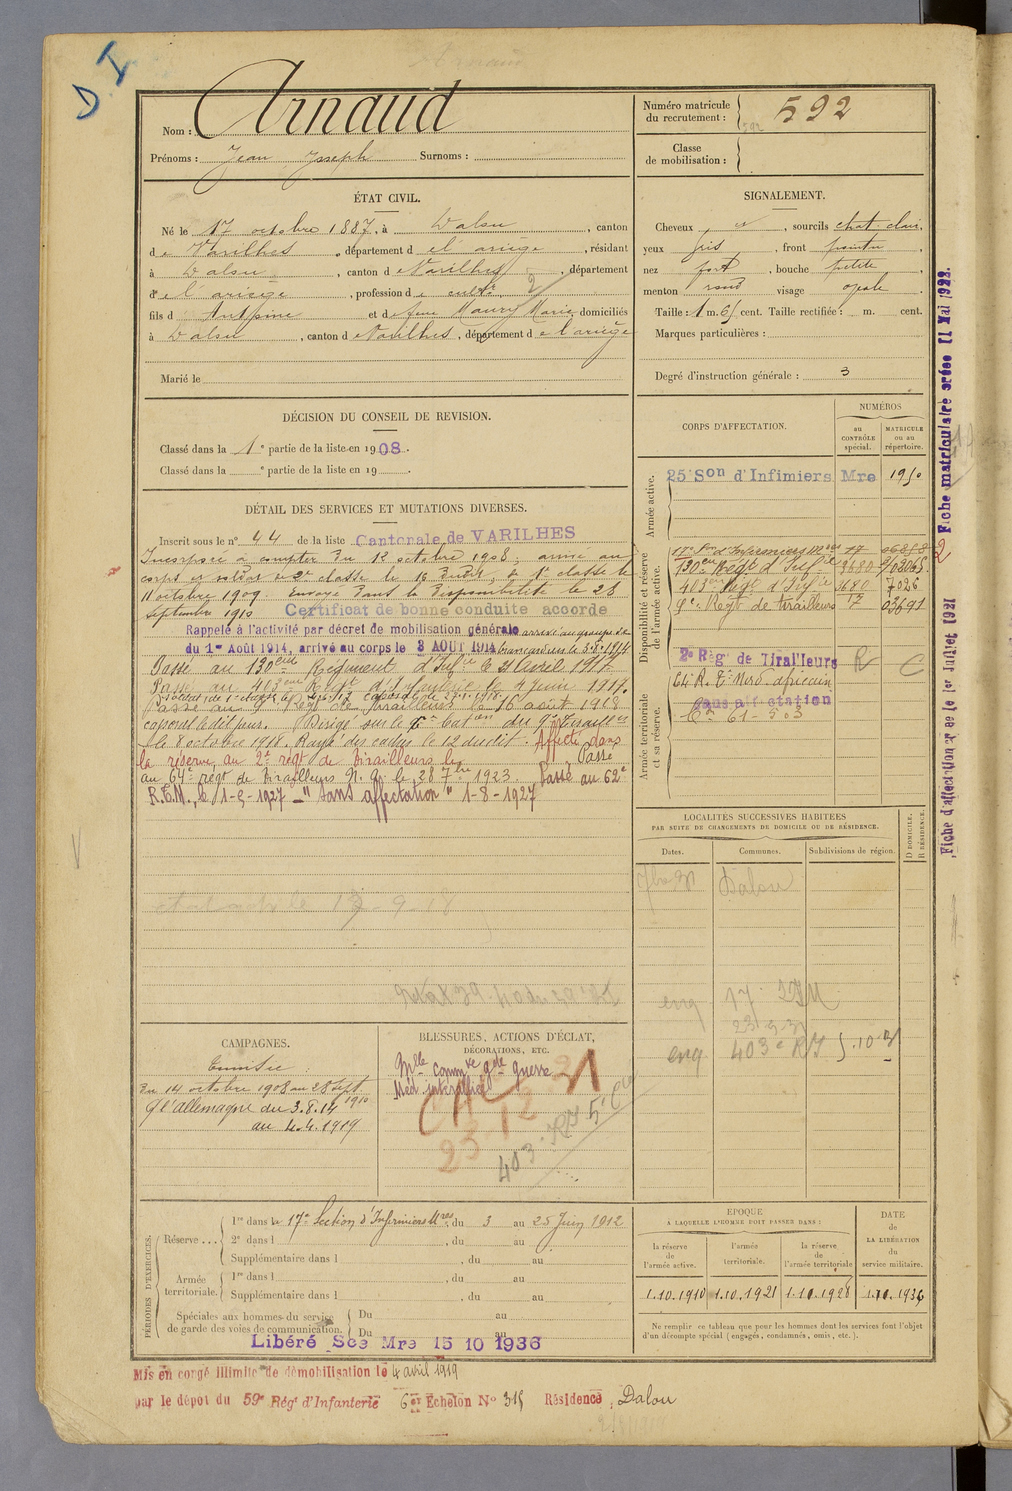 D I
Nom : Arnaud
Prénoms : Jean Joseph Surnoms :
Numéro matricule du recrutement : 592
Classe de mobilisation :
ÉTAT CIVIL.
Né le 17 octobre 1887, à Dalou, canton
de Varilhes, département de l'ariège, résidant
à Dalou, canton de Varilhes, département
de l'ariège, profession de cultr
fils d'Antoine et de feue Maury Marie, domiciliés
à Dalou, canton de Varilhes, département de l'ariège
Marié le
SIGNALEMENT.
Cheveux, sourcils chat. clair,
yeux gris, front pointu,
nez fort, bouche petite
menton rond visage ovale
Taille : 1 m. 65 cent. Taille rectifiée : m. cent.
Marques particulières :
Degré d'instruction générale : 3
DÉCISION DU CONSEIL DE REVISION.
Classé dans la 1e partie de la liste en 1908.
Classé dans la e partie de la liste en 19
DÉTAIL DES SERVICES ET MUTATIONS DIVERSES.
Inscrit sous le n° 44 de la liste Cantonale de VARILHES
Incorporé à compter du 12 octobre 1908, arrivé au
corps et soldat de 2e classe le 16 dudit, de 1e classe le
11 octobre 1909. Envoyé dans la disponibilité le 28
septembre 1910 Certificat de bonne conduite accorde
Rappelé à l'activité par décret de mobilisation générale arrivé au groupe de
du 1er Août 1914, arrivé au corps le 3 AOUT 1914 brancardiers le 5.8.1914
Passé au 130eme Régiment d'Infie le 21 Avril 1917.
Passé au 413eme Régt d'Infanterie le 4 juin 1917.
Passé au Régt de tirailleurs le 16 août 1918
caporal le dit jour. Dirigé sur le baton du 9e Tirailleurs
le 8 octobre 1918. Rayé des cadres le 12 du dit. Affecté dans
la réserve au 2e régt de Tirailleurs le Passé
au 64e régt de Tirailleurs N. a. le 28 7bre 1923. Passé au 62e
R.T.M., le 1-5-1927 - "Sans affectation" 1-8-1927
CORPS D'AFFECTATION.
NUMÉROS
au CONTRÔLE spécial.
MATRICULE ou au répertoire.
Armée active.
25 Son d'Infimiers Mre 1950
Disponibilité et réserve de l'armée active.
17e Son d'Infirmiers Mres 17
130eme Régt d'Infie 3680
403eme Régt d'Infie 3680 7026
9e Régt de tirailleurs 17
2e Règ de Tirailleurs R C
64e R. T. Nord-africain
Armée territoriale et sa réserve.
Sans affectation
Cn 61-503
LOCALITÉS SUCCESSIVES HABITÉES
PAR SUITE DE CHANGEMENTS DE DOMICILE OU DE RÉSIDENCE.
Dates. Communes. Subdivisions de région. D DOMICILE. R RÉSIDENCE.
Dalou
403e RI
CAMPAGNES.
Tunisie
du 14 octobre 1908 au 28 sept. 1910
C/ l'allemagne du 3.8.14
au 4.4.1919
BLESSURES, ACTIONS D'ÉCLAT,
DÉCORATIONS, ETC.
Mlle commve gde guerre
Méd. interalliée
PÉRIODES D'EXERCICES.
Réserve .... 1re dans la 17e Section d'Infirmiers Mres du 3 au 25 Juin 1912
2e dans l , du au
Supplémentaire dans l , du au
Armée territoriale. 1re dans l , du au
Supplémentaire dans l , du au
Spéciales aux hommes du service de garde des voies de communication. Du au
Du au
Libéré See Mre 15 10 1936
EPOQUE
A LAQUELLE L'HOMME DOIT PASSER DANS :
la réserve de l'armée active.
l'armée territoriale.
la réserve de l'armée territoriale
DATE de LA LIBÉRATION du service militaire.
1.10.1910 1.10.1921 1.10.1928 1.10.1936
Ne remplir ce tableau que pour les hommes dont les services font l'objet
d'un décompte spécial (engagés, condamnés, omis, etc.).
Mis en congé illimité de démobilisation le 4 avril 1919
par le dépot du 59e Régt d'Infanterie 6er Echelon N° 315 Résidence, Dalou
Fiche d'affectation crée le 1er Juillet 1921
Fiche matriculaire créée 11 Mai 1922.